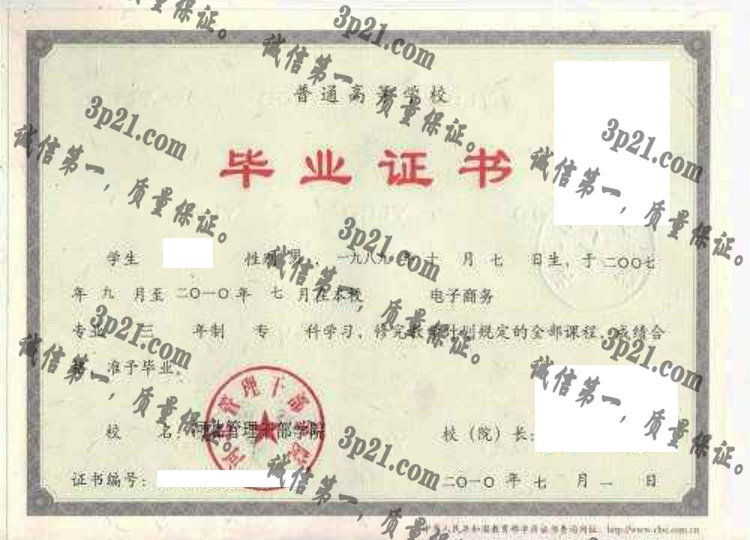 普通高等学校
毕业证书
学生 性别 男，一九八九年十月七日生，于二〇〇七
年九月至二〇一〇年七月在本校 电子商务
专业 三 年制 专 科学习，修完教学计划规定的全部课程，成绩合
格，准予毕业。
校 名： 管理干部学院
校（院）长：
证书编号：
二〇一〇年七月一日
中华人民共和国教育部学历证书查询网址：http://www.chsi.com.cn
管理干部
3p21.com
诚信第一，质量保证。
3p21.com
诚信第一，质量保证。
3p21.com
诚信第一，质量保证。
3p21.com
诚信第一，质量保证。
3p21.com
诚信第一，质量保证。
3p21.com
诚信第一，质量保证。
3p21.com
诚信第一，质量保证。
质量保证。